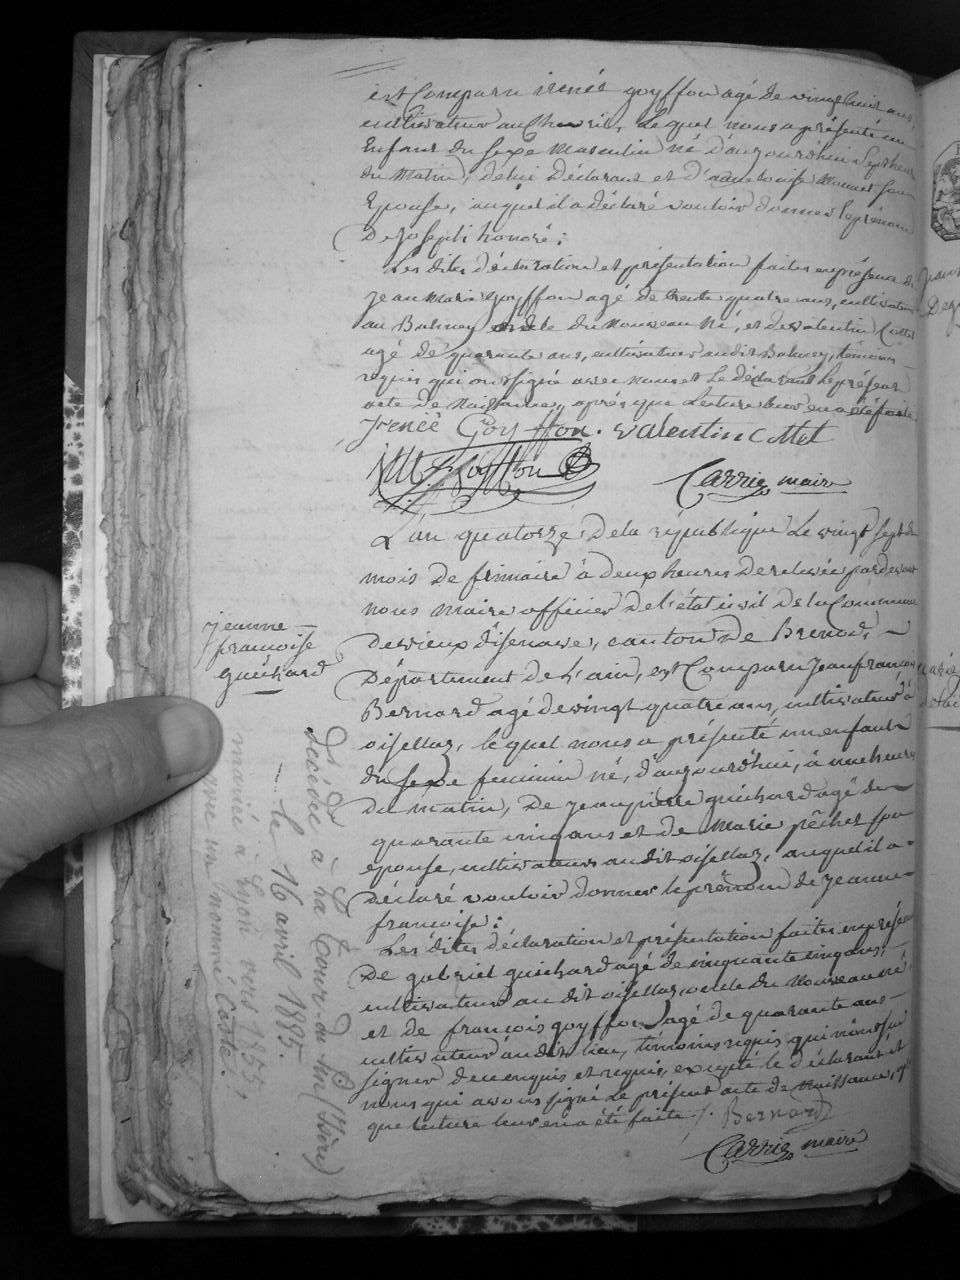 est Comparu irenée goyffon agé de vingt huit ans,
cultivateur au Chevril, lequel nous a présenté un
Enfant du sexe masculin né d'aujourdhui sept heures
du Matin, de lui Déclarant et d' Monnet son
Epouse, auquel il a déclaré vouloir donner le prénom
De joseph honoré;
Les dites déclaration et présentation faites en présence de
jean Marie goyffon agé de trente quatre ans, cultivateur
au Balmey oncle du nouveau né, et de valentin Cottet
agé de quarante ans, cultivateur audit Balmey, témoins
requis qui ont signé avec nous et le déclarant le présent
acte de Naissance, après que Lecture leur en a été faite
Irenée Goyffon. valentin Cottet
JM Goyffon
Carrier maire
L'an quatorze de la république le vingt sept du
mois de frimaire à deux heures de relevée pardevant
nous maire officier de l'état civil de la Commune
de vieux d'isenave, canton de Brenod,
Département de l'ain, est Comparu Jean françois
Bernard agé de vingt quatre ans, cultivateur à
oisellaz, lequel nous a présenté un enfant
du sexe feminin né, d'aujourdhui, à une heure
du matin, De jean pierre guichard agé de
quarante cinq ans et de Marie pêchet son
épouse, cultivateurs au dit oisellaz, auquel il a
déclaré vouloir donner le prénom de jeanne
françoise:
Les dites déclaration et présentation faites en présence
De gabriel guichard agé de cinquante cinq ans,
cultivateur au dit oisellaz, oncle du nouveau né,
et de françois goyffon agé de quarante ans
cultivateur au dit lieu, témoins requis qui n'ont su
signer de ce enquis et requis, excepté le déclarant et
nous qui avons signé le présent acte de Naissance, après
que lecture leur en a été faite /. Bernard
Carrier maire
jeanne
françoise
guichard
décédée à La Tour-du-Pin (Isère)
le 16 avril 1885.
mariée à Lyon vers 1855,
avec un nommé Coste.